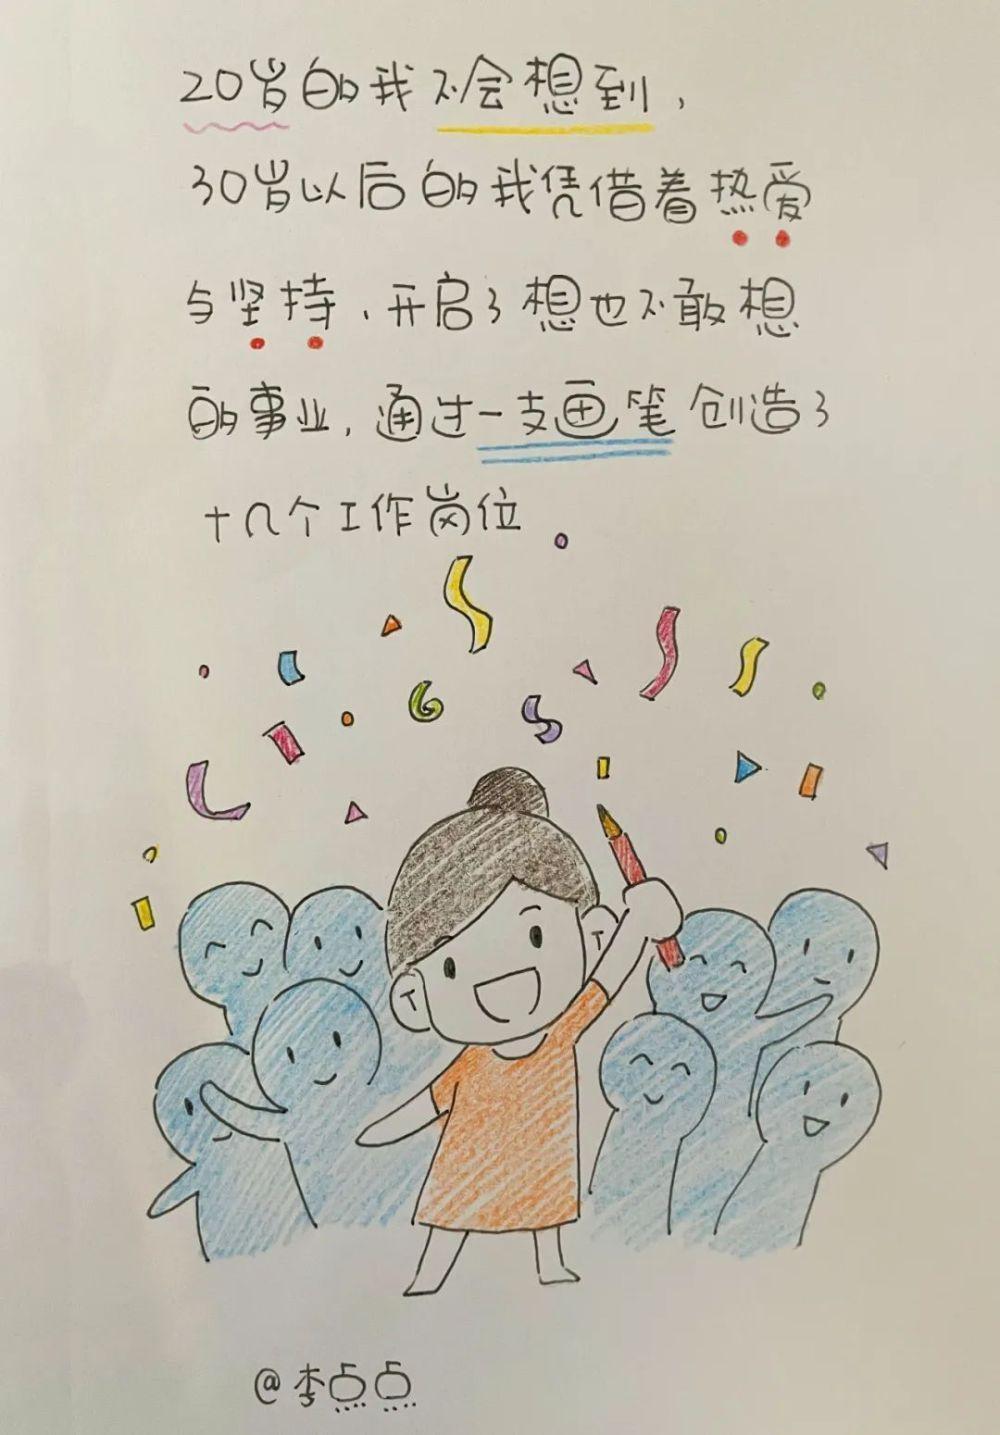 20岁的我不会想到,
30岁以后的我凭借着热爱
与坚持,开启了想也不敢想
的事业,通过一支画笔创造了
十几个工作岗位
@李点点